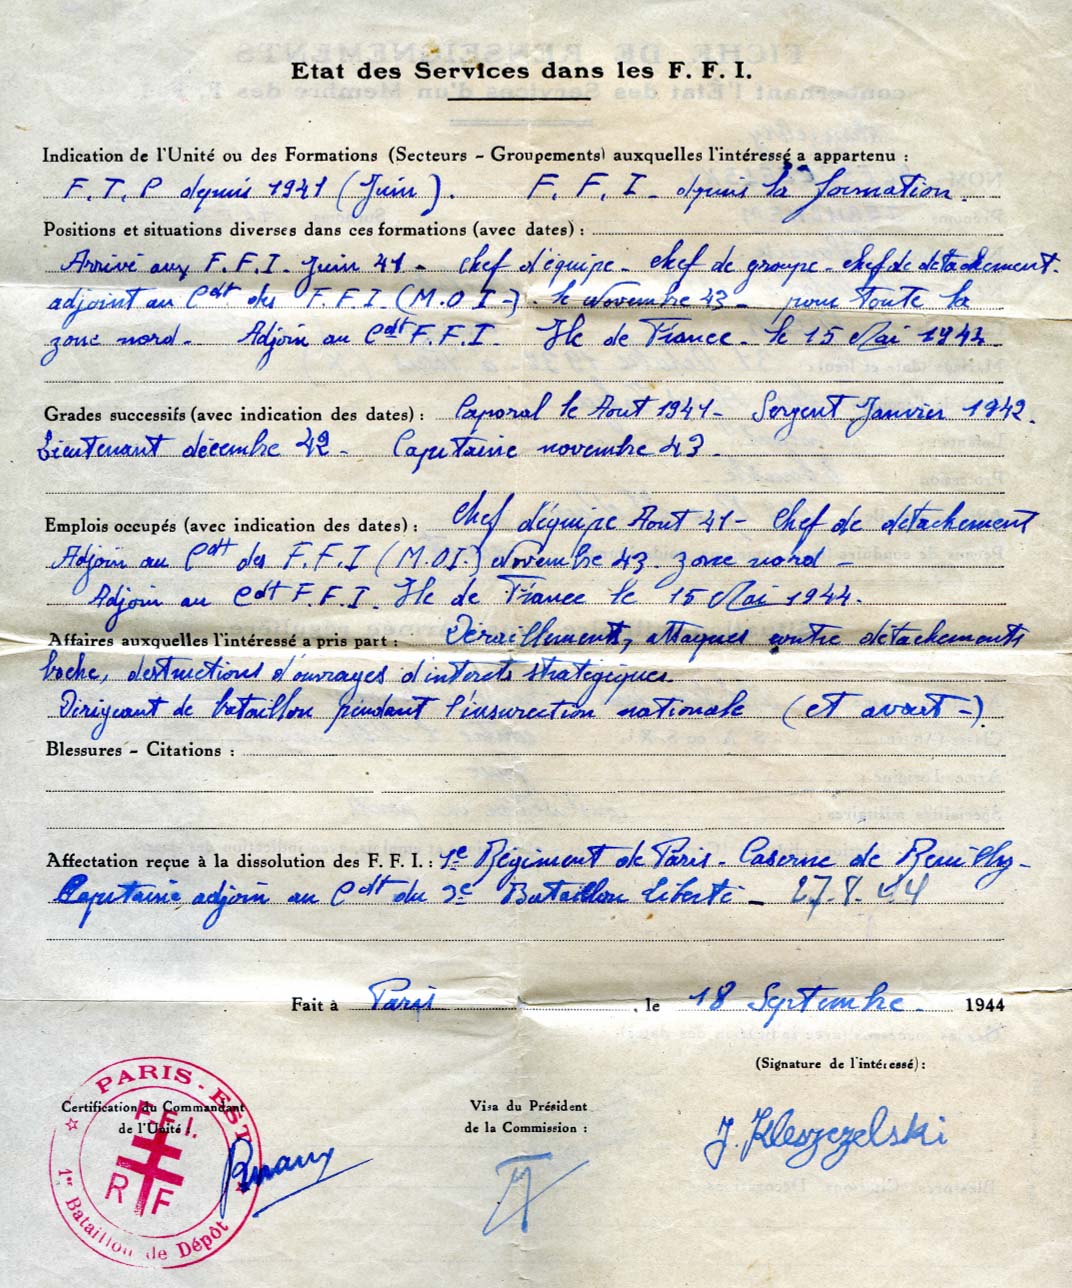 Etat des Services dans les F. F. I.
Indication de l'Unité ou des Formations (Secteurs - Groupements) auxquelles l'intéressé a appartenu :
F. T. P depuis 1941 (Juin). F. F. I - depuis la formation.
Positions et situations diverses dans ces formations (avec dates) :
Arrivé aux F.F.I - Juin 41 - Chef d'équipe - chef de groupe - chef de détachement.
adjoint au Cdt des F.F.I. (M.O.I -). le Novembre 43 - pour toute la
zone nord - Adjoin au Cdt F.F.I - Ile de France - le 15 Mai 1944
Grades successifs (avec indication des dates) : Caporal le Aout 1941 - Sergent Janvier 1942.
Lieutenant décembre 42 - Capitaine novembre 43.
Emplois occupés (avec indication des dates) : Chef d'équipe Aout 41 - Chef de détachement
Adjoin au Cdt des F.F.I (M.OI.) Novembre 43. zone nord -
Adjoin au Cdt F.F.I. Ile de France le 15 Mai 1944.
Affaires auxquelles l'intéressé a pris part : Déraillements, attaques contre détachements
boche, destructions d'ouvrages d'intérets stratégiques
Dirigeant de bataillon pendant l'insurection nationale (et avant -)
Blessures - Citations :
Affectation reçue à la dissolution des F. F. I. : 1e Régiment de Paris - Caserne de Reuilly -
Capitaine adjoin au Cdt du 2e Bataillon Liberté - 27.8.44
Fait à Paris, le 18 Septembre - 1944
(Signature de l'intéressé) :
Certification du Commandant
de l'Unité :
Visa du Président
de la Commission :
J. Kleszczelski
PARIS-EST
F.F.I.
R F
1er Bataillon de Dépôt